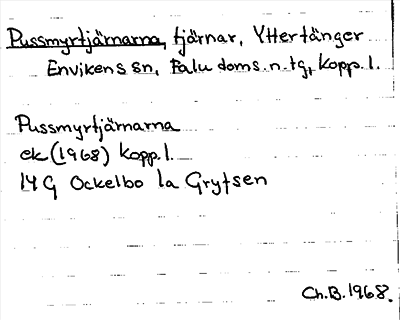 Pussmyrtjärnarna, tjärnar, Yttertänger
Envikens sn, Falu doms.n.tg, Kopp.l.
Pussmyrtjärnarna
ek (1968) Kopp.l.
14 G Ockelbo 1a Grytsen
Ch.B. 1968.